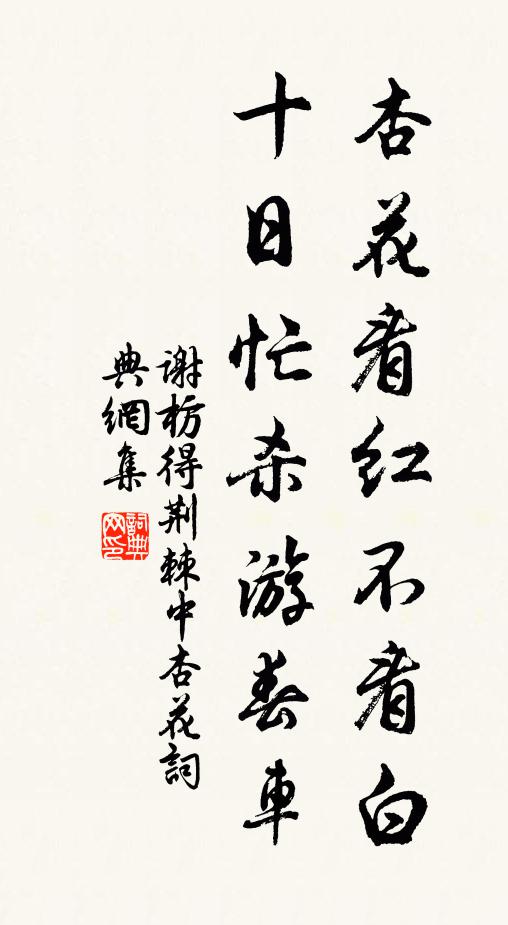 杏花看红不看白
十日忙杀游春車
谢枋得荆棘中杏花詞
典網集
詞典网印